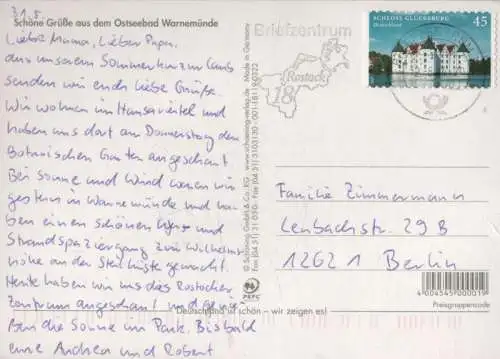 31.5.
Schöne Grüße aus dem Ostseebad Warnemünde
Liebe Mama, Lieber Papa,
aus unserem Sommerkurzurlaub
senden wir euch liebe Grüße.
Wir wohnen im Hansaviertel und
haben uns dort am Donnerstag den
Botanischen Garten angeschaut
Bei Sonne und Wind waren wir
gestern in Warnemünde und ha-
ben einen schönen
Strandspaziergang zur Wilhelms-
höhe an der Steilküste gemacht.
Heute haben wir uns das Rostocker
Zentrum angeschaut und genie-
ßen die Sonne im Park. Bis bald
eure Andrea und Robert
Deutschland ist schön – wir zeigen es!
© Schöning GmbH & Co. KG · www.schoening-verlag.de · Made in Germany
Fax (04 51) 3 10 03
PEFC
Briefzentrum
Rostock
18
SCHLOSS GLÜCKSBURG
Deutschland
45
Familie Zimmermann
Lenbachstr. 29B
12621 Berlin
4 004545 000019
Preisgruppencode